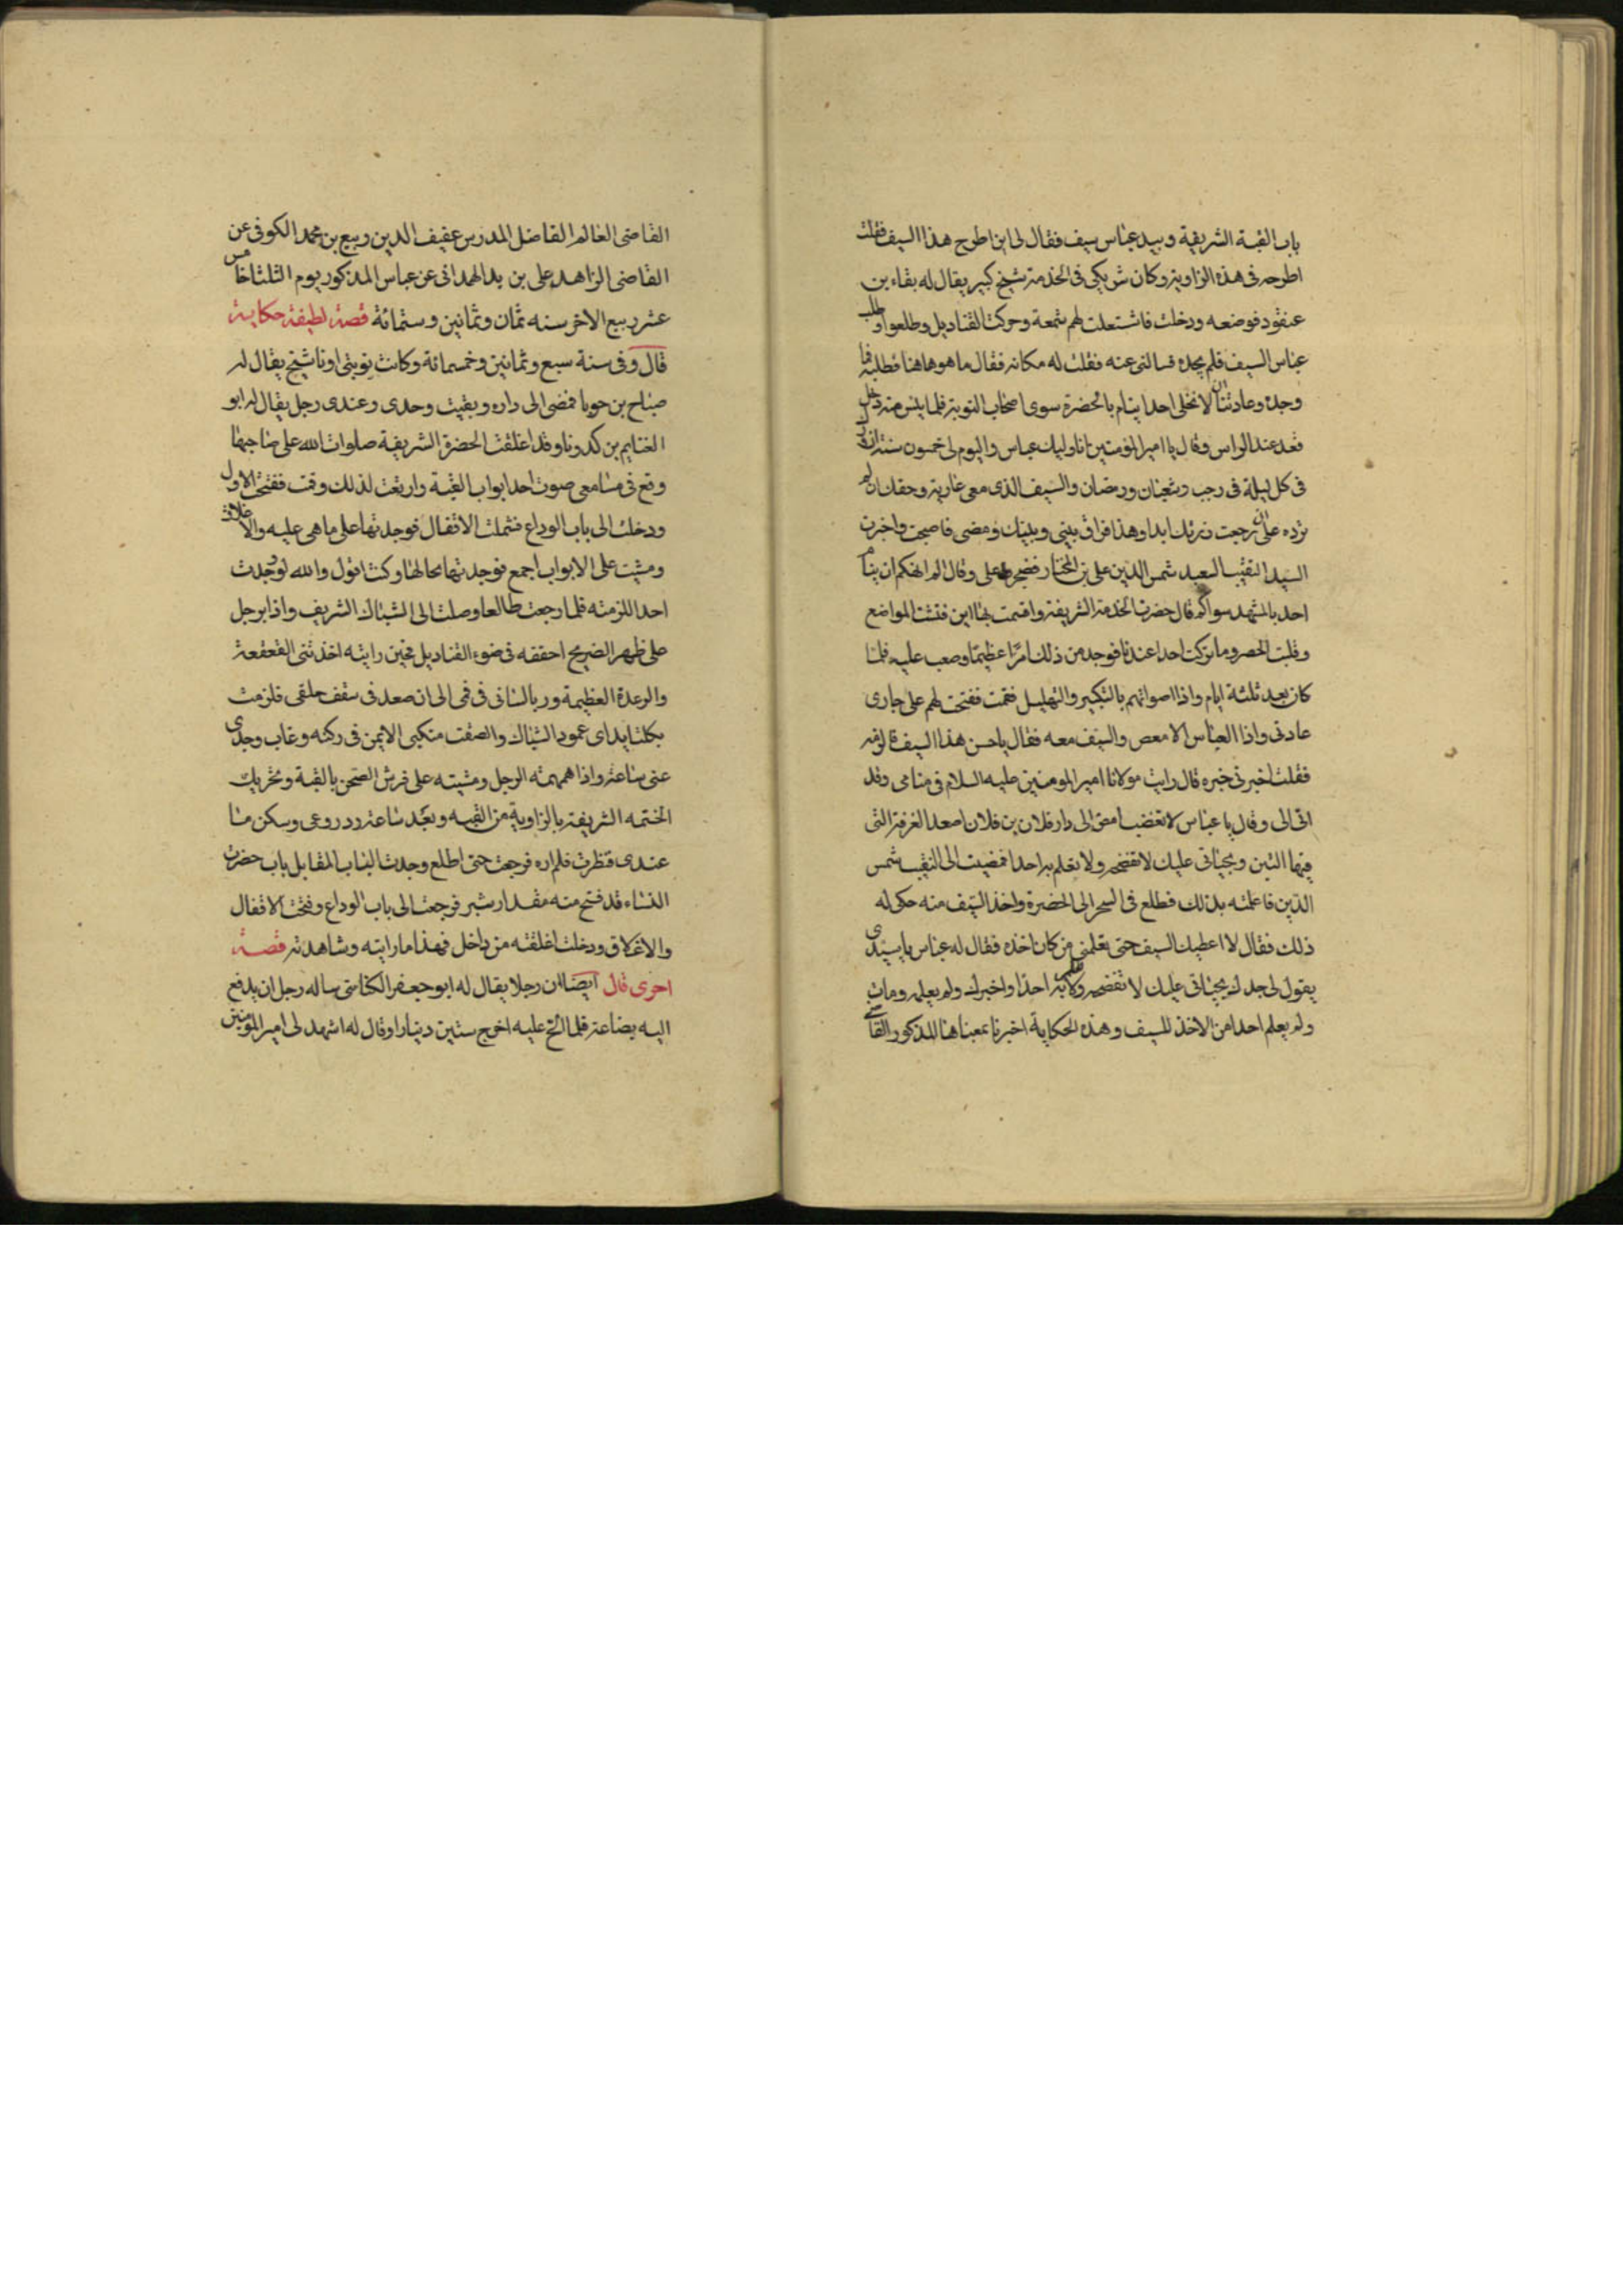 باب القبة الشريفة وبيد عباس سيف فقال لى اين اطرح هذا السيف فقلت
اطرحه فى هذه الزاوية وكان شريكى فى الخدمة شيخ كبير يقال له بقاء بن
عنقود فوضعه ودخلت فاشتعلت لهم شمعة وحركت القناديل وطلعوا وطلب
عباس السيف فلم يجده فسالنى عنه فقلت له مكانه فقال ما هو هاهنا فطلبه فما
وجده وعادتنا ان لا نخلى احدا ينام بالحضرة سوى اصحاب النوبة فلما يئس منه دخل
فقعد عند الراس وقال يا امير المؤمنين انا وليك عباس واليوم لى خمسون سنة ازورك
فى كل ليلة فى رجب وشعبان ورمضان والسيف الذى معى عارية وحقك ان لم
ترده على ان رجعت زرتك ابدا وهذا فراق بينى وبينك ومضى فاصبحت واخبرت
السيد النقيب السعيد شمس الدين على بن المختار فضجر على وقال الم انهكم ان ينام
احد بالمشهد سواكم قال حضرت الخدمة الشريفة واقسمت بها اين فتشت المواضع
وقلبت الحصر وما تركت احدا عندنا فوجد من ذلك امرا عظيما وصعب عليه فلما
كان بعد ثلثة ايام واذا اصواتهم بالتكبير والتهليل فقمت ففتحت لهم على جارى
عادتى واذا العباس الامعص والسيف معه فقال ياحسن هذا السيف فالزمه
فقلت اخبرنى خبره قال رايت مولانا امير المومنين عليه السلام فى منامى وقد
اتى الى وقال يا عباس لا تغضب امض الى دار فلان بن فلان اصعد الغرفة التى
فيها التبن وبحياتى عليك لا تفضحه ولا تعلم به احدا فمضيت الى النقيب شمس
الدين فاعلمته بذلك فطلع فى السحر الى الحضرة واخذ السيف منه حكى له
ذلك فقال لا اعطيك السيف حتى تعلمنى من كان اخذه فقال له عباس يا سيدى
يقول لى جدك بحياتى عليك لا تفضحه ولا تعلم به احدا واخبرك ولم يعلمه ومات
ولم يعلم احدا من الاخذ للسيف وهذه الحكاية اخبرنا بمعناها المذكور القاضى
القاضى العالم الفاضل المدرس عفيف الدين ربيع بن محمد الكوفى عن
القاضى الزاهد على بن بد الهمدانى عن عباس المذكور يوم الثلثا خامس
عشر ربيع الاخر سنه ثمان وثمانين وستمائة قصة لطيفة حكاية
قال وفى سنة سبع وثمانين وخمسمائة وكانت نوبتى انا وشيخ يقال له
صباح بن حوبا فمضى الى داره وبقيت وحدى وعندى رجل يقال له ابو
الغنايم بن كدونا وقد اغلقت الحضرة الشريفة صلوات الله على صاحبها
وقع فى مسامعى صوت احد ابواب القبة وارتعت لذلك وقمت ففتحت الاول
ودخلت الى باب الوداع فشملت الاقفال فوجدتها على ما هى عليه والاغلاق
ومشيت على الابواب اجمع فوجدتها بحالها وكنت اقول والله لو وجدت
احدا للزمته فلما رجعت طالعا وصلت الى الشباك الشريف واذا برجل
على ظهر الضريح احققه فى ضوء القناديل فحين رايته اخذتنى القعقعة
والرعدة العظيمة وربا لسانى فى فمى الى ان صعد فى سقف حلقى فلزمت
بكلتا يداى عمود الشباك والصقت منكبى الايمن فى ركنه وغاب وجدى
عنى ساعة واذا همهمة الرجل ومشيته على فرش الصحن بالقبة وتحريك
الختمه الشريفة بالزاوية من القبه وبعد ساعة رد روعى وسكن ما
عندى فنظرت فلم اره فرجعت حتى اطلع وجدت الباب المقابل باب حضرت
النساء قد فتح منه مقدار شبر فرجعت الى باب الوداع وفتحت الاقفال
والاغلاق ودخلت اغلقته من داخل فهذا ما رايته وشاهدته قصة
اخرى قال ايضا ان رجلا يقال له ابو جعفر الكناسى ساله رجل ان يدفع
اليه بضاعة فلما الح عليه اخرج ستين دينارا وقال له اشهد لى امير المؤمنين